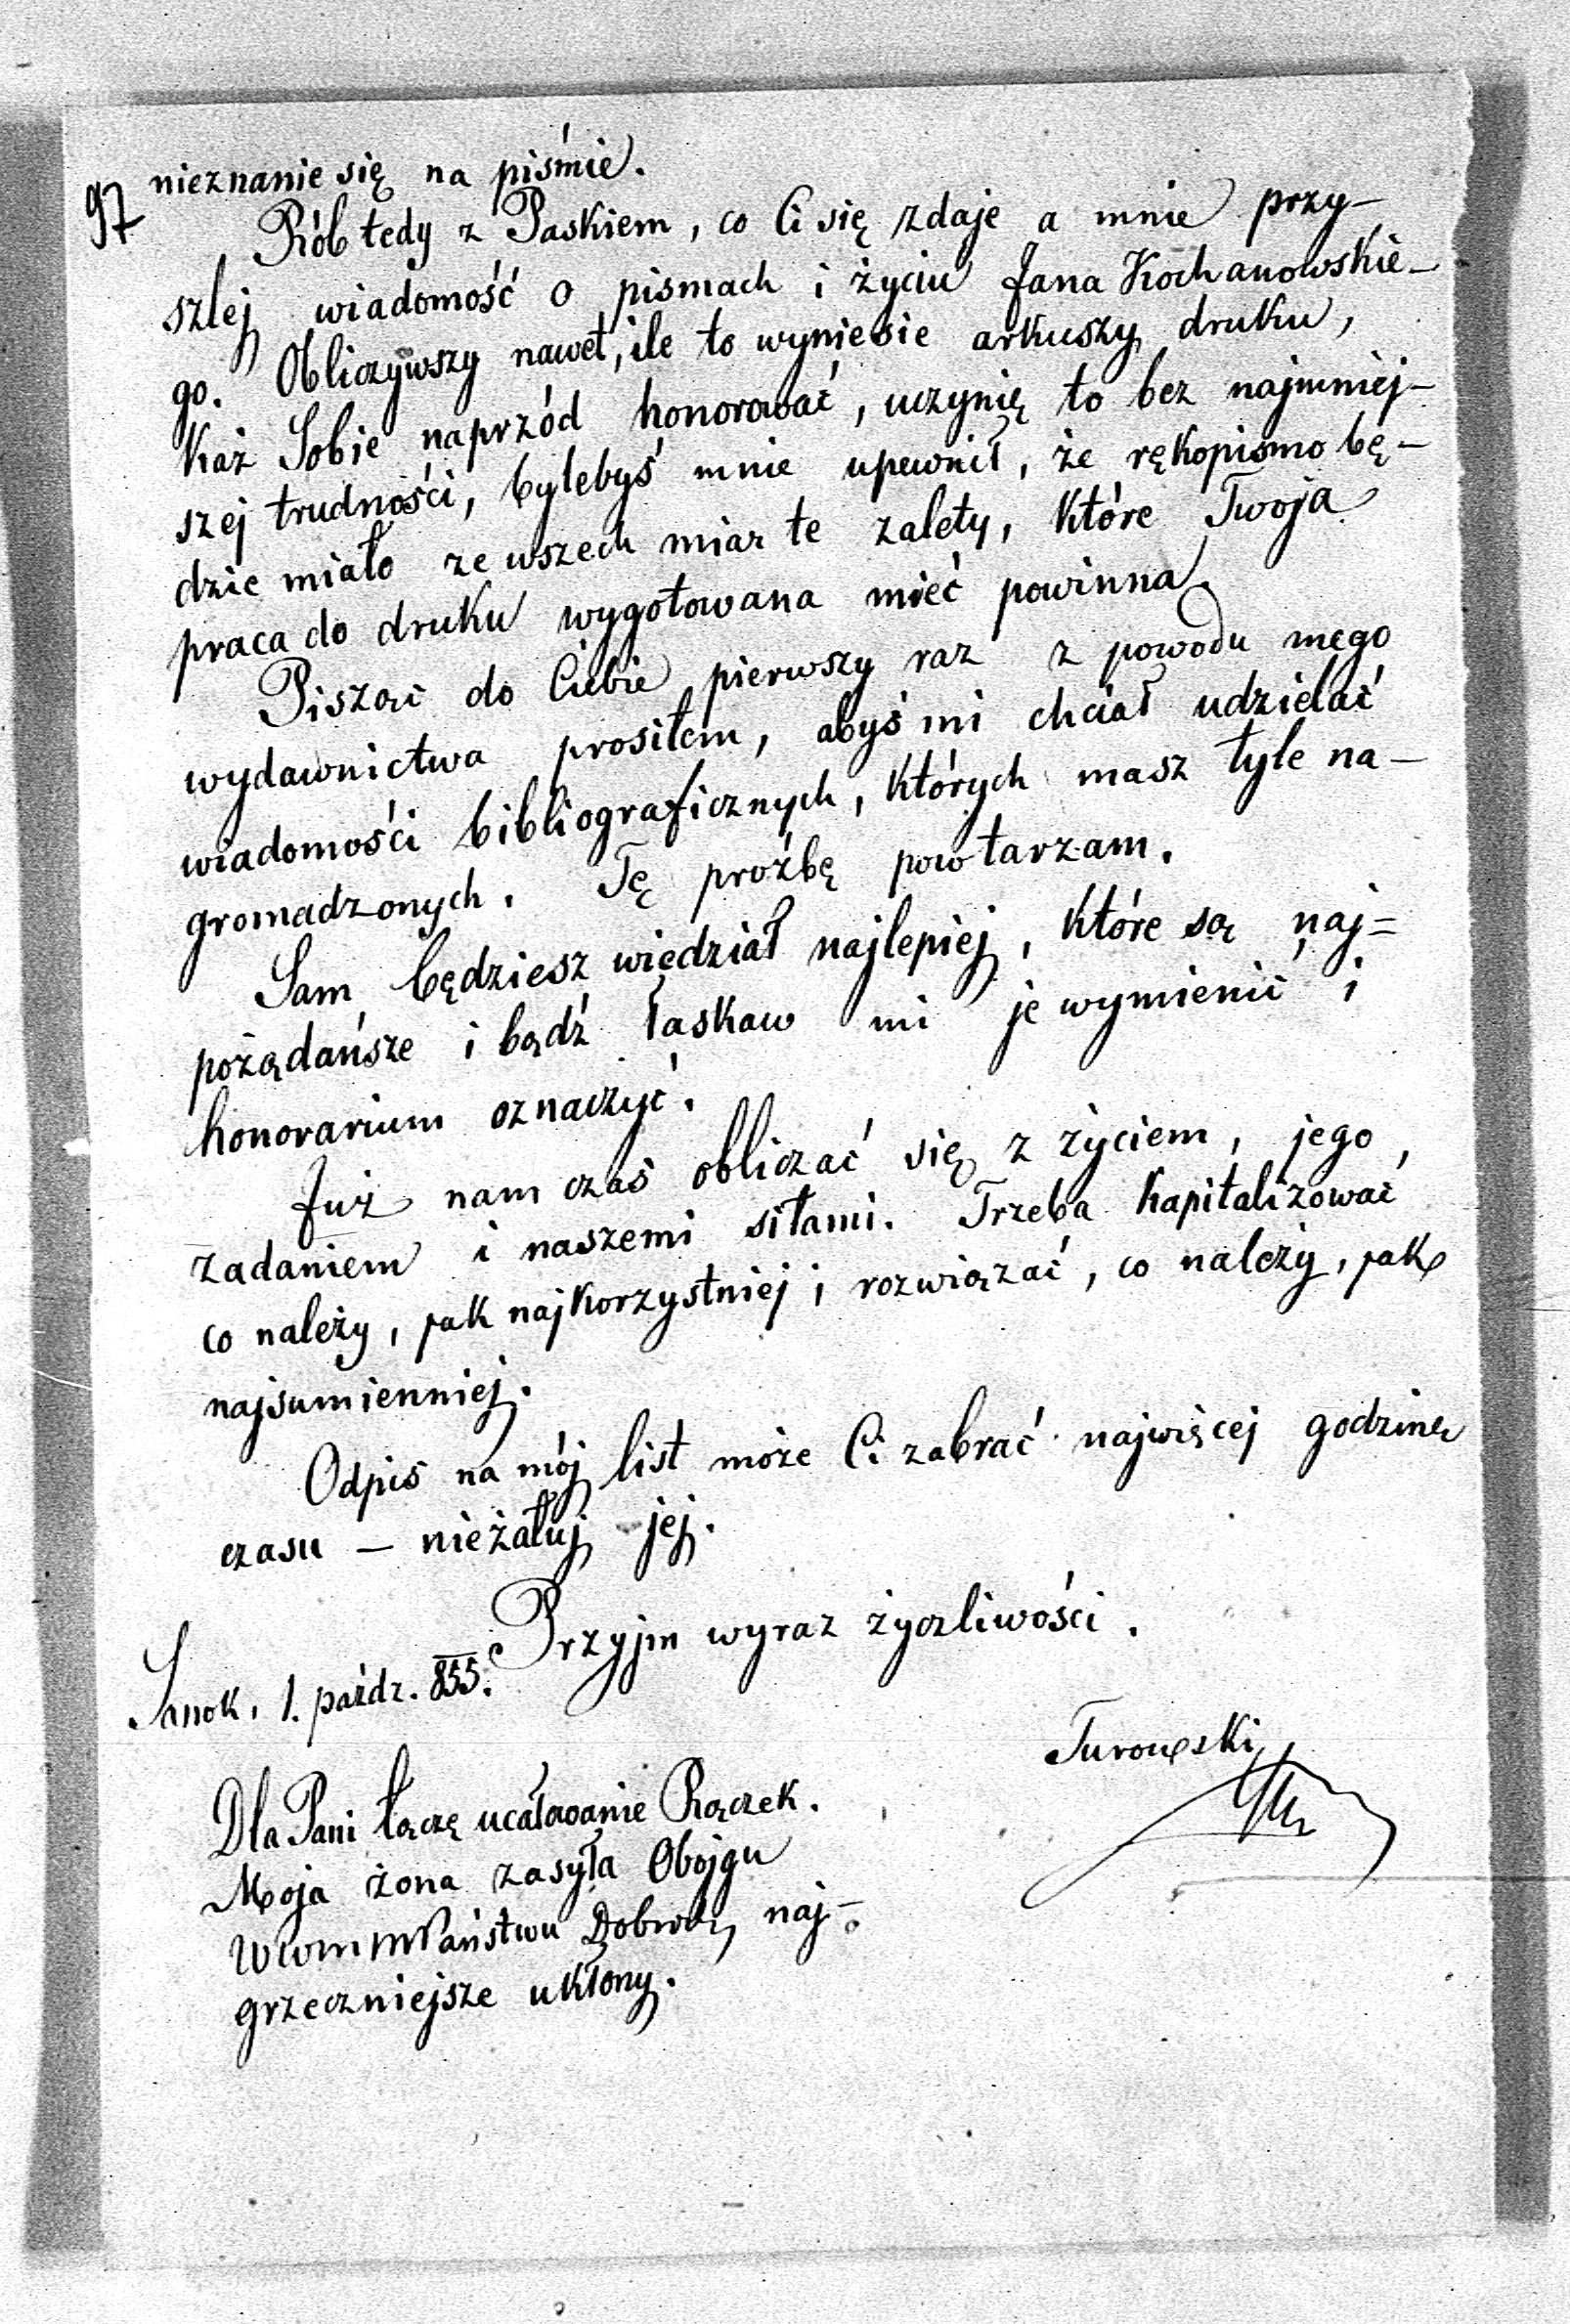 97 nieznanie się na piśmie.
Rób tedy z Paskiem, co Ci się zdaje a mnie przy-
szlej wiadomość o pismach i życiu Jana Kochanowskie-
go. Obliczywszy nawet, ile to wyniesie arkuszy druku,
każ Sobie naprzód honorować, uczynię to bez najmniej-
szej trudności, byłebyś mnie upewnił, że rękopismo bę-
dzie miało ze wszech miar te zalety, które Twoja
praca do druku wygotowana mieć powinna.
Pisząc do Ciebie pierwszy raz z powodu mego
wydawnictwa prosiłem, abyś mi chciał udzielać
wiadomości bibliograficznych, których masz tyle na-
gromadzonych. Tę proźbę powtarzam.
Sam będziesz wiedział najlepiej, które są naj=
pożądańsze i bądź łaskaw mi je wymienić i
honorarium oznaczyć.
Już nam czas obliczać się z życiem, jego
zadaniem i naszemi siłami. Trzeba kapitalizować
co należy, jak najkorzystniej i rozwiązać, co należy, jak
najsumienniej.
Odpis na mój list może Ci zabrać najwięcej godzinę
czasu — nieżałuj jej.
Przyjm wyraz życzliwości.
Sanok, 1. paźdz. 855.
Turowski
Dla Pani łączę ucałowanie Rączek.
Moja żona zasyła Obojgu
Państwu naj-
grzeczniejsze ukłony.